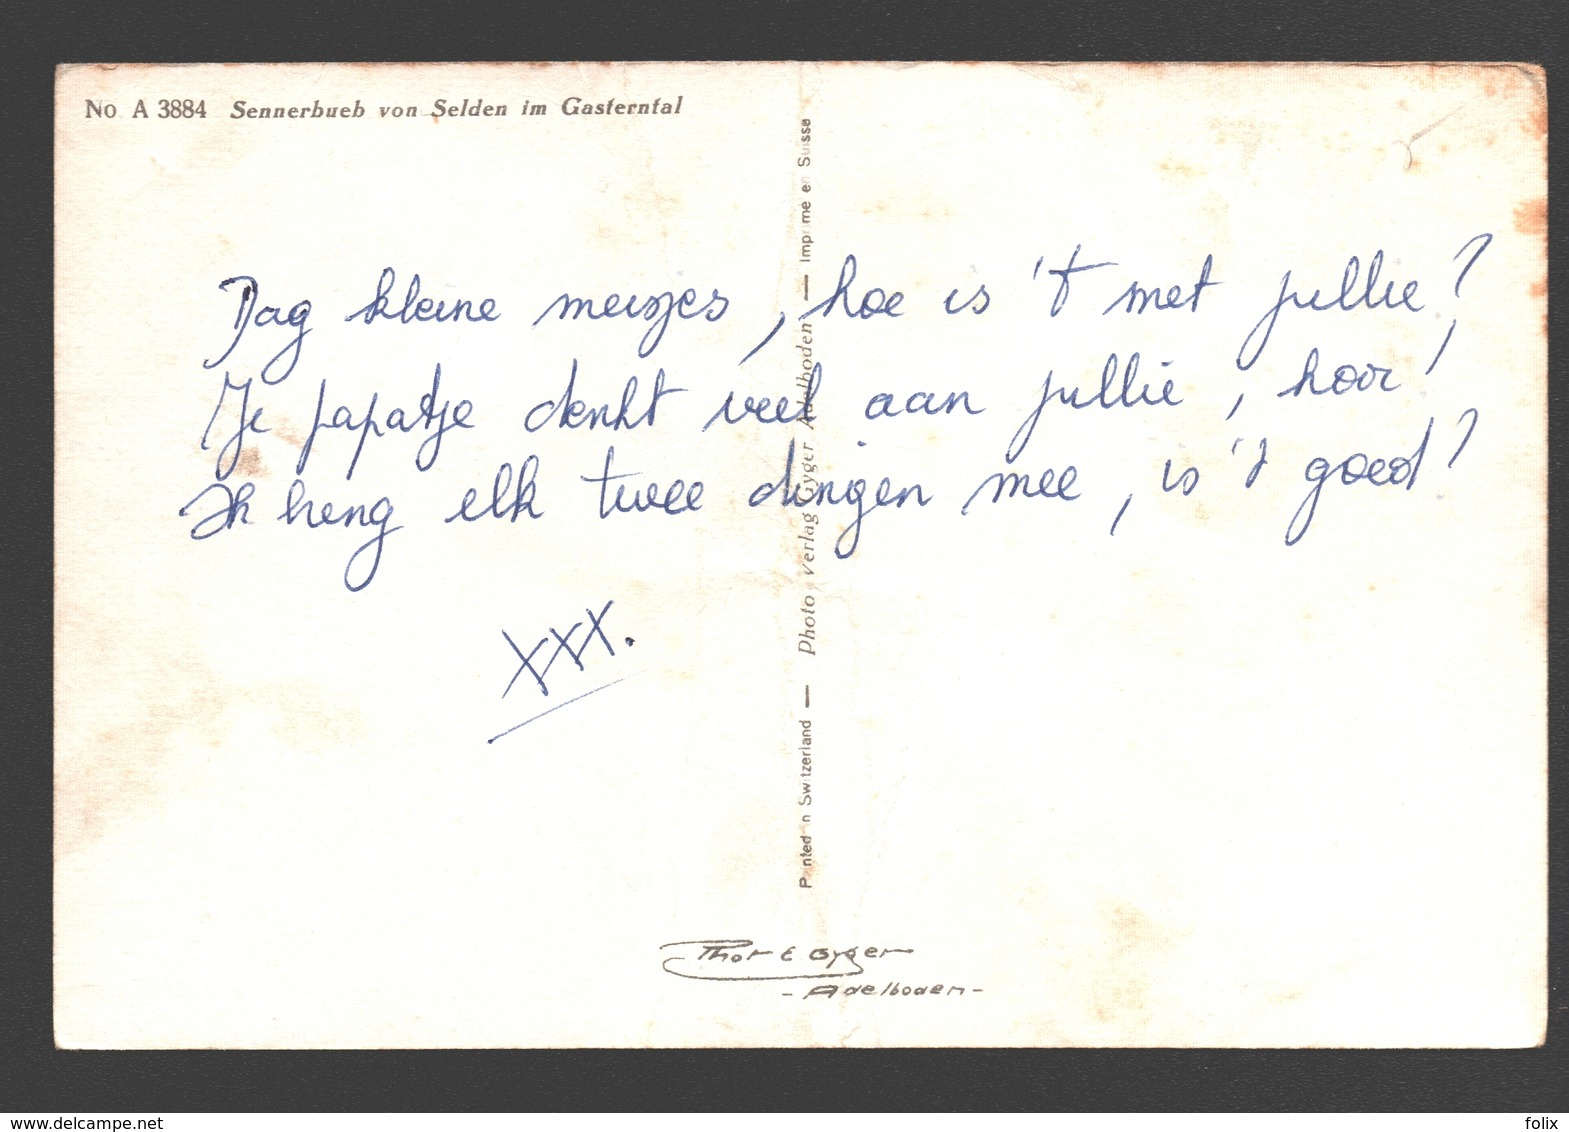 No A 3884 Sennerbueb von Selden im Gasterntal
Dag kleine meisjes, hoe is 't met jullie?
Je papatje denkt veel aan jullie, hoor!
Ik breng elk twee dingen mee, is 't goed?
XXX.
Printed in Switzerland — Photo Verlag Gyger Adelboden — Imprimé en Suisse
Phot E Gyger
- Adelboden -
www.delcampe.net
folix